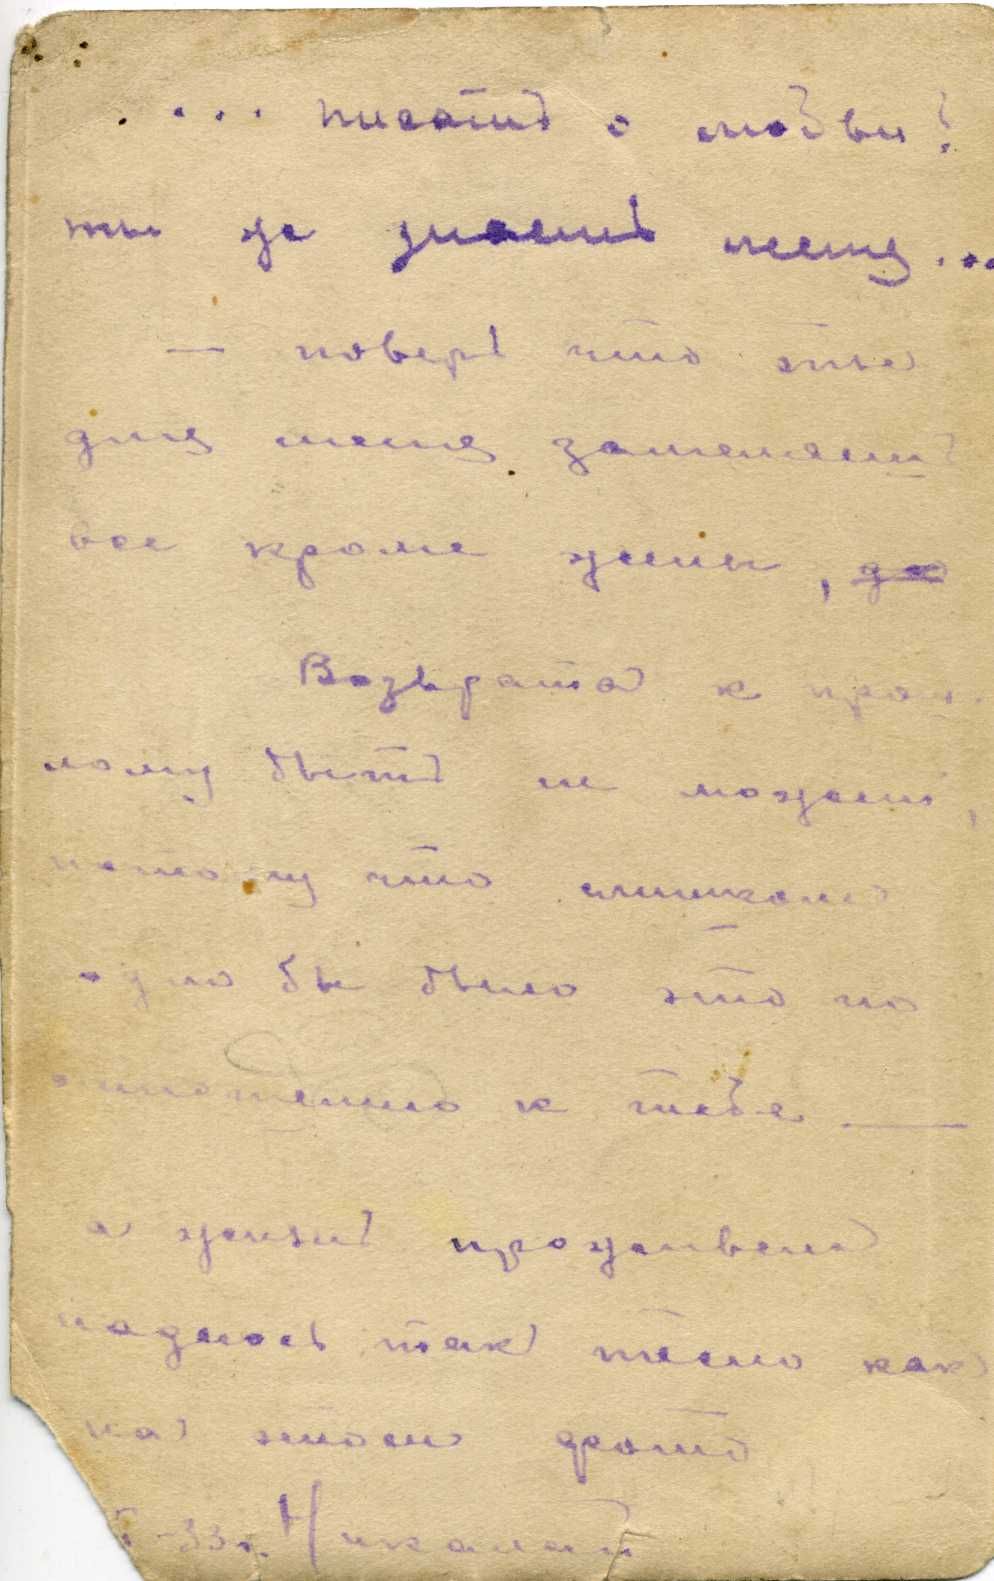 ... писать о любви?
ты же знаешь меня...
— поверь что ты
для меня заменяешь
все кроме жены,
Возврата к прош
лому быть не может,
потому что слишком
бы было это по
отношению к тебе —
а жизнь проживем
надеюсь так тесно как
на этом фото
-33г. Николай